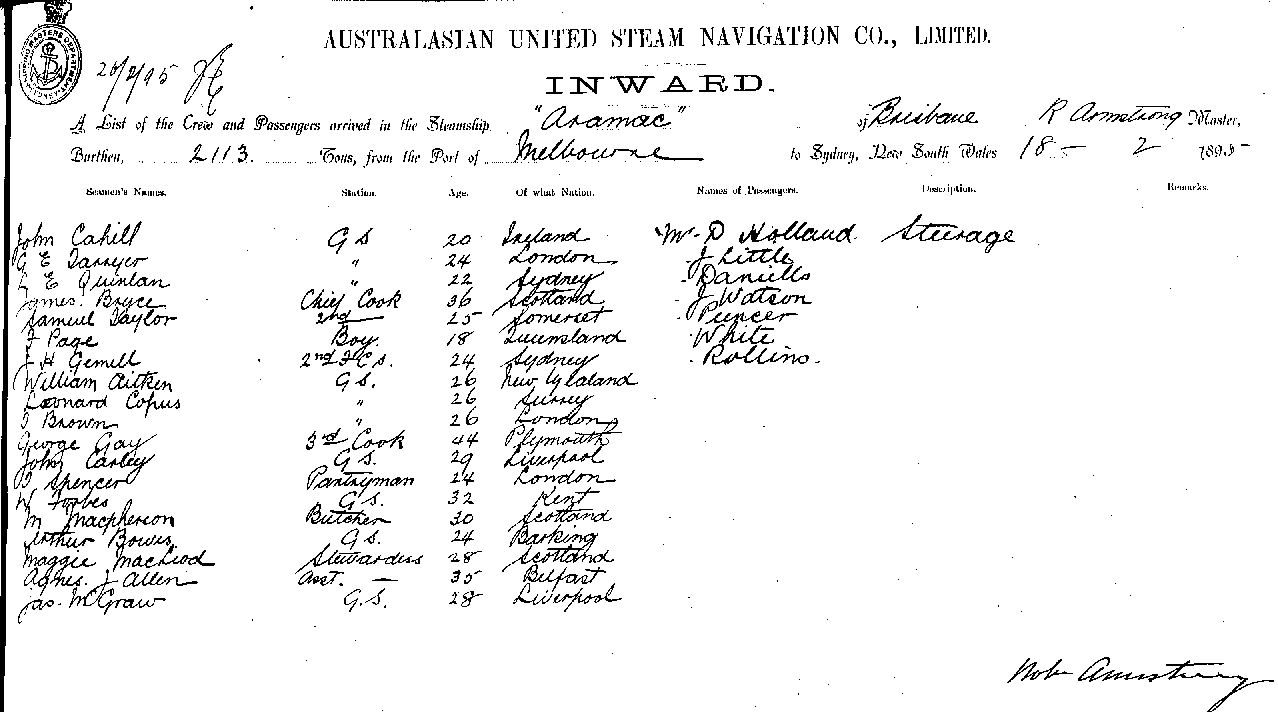 AUSTRALASIAN UNITED STEAM NAVIGATION CO., LIMITED.
20/2/95
INWARD.
A List of the Crew and Passengers arrived in the Steamship "Aramac" of Brisbane R Armstrong Master,
Burthen, 2113. Tons, from the Port of Melbourne to Sydney, New South Wales 18 - 2 1895
Seamen's Names. Station. Age. Of what Nation. Names of Passengers. Description. Remarks.
John Cahill G S 20 Ireland Mr D Holland Steerage
G E " 24 London J Little
E Quinlan " 22 Sydney Daniells
James Bryce Chief Cook 36 Scotland J Watson
Samuel Taylor 2nd — 25 Somerset
J Page Boy 18 Queensland White
J H Gemell 2nd 24 Sydney Rollins.
William Aitken G S. 26 New Zealand
Leonard Copus " 26 Surrey
Brown " 26 London
George Gay 3rd Cook 44 Plymouth
John Earley G S. 29 Liverpool
Spencer Pantryman 24 London
W Forbes G S. 32 Kent
M Macpherson Butcher 30 Scotland
Arthur Bowis G S. 24 Barking
Maggie MacLeod Stewardess 28 Scotland
Agnes. J Allen Asst. — 35 Belfast
Jas. McGraw G.S. 28 Liverpool
Rob Armstrong